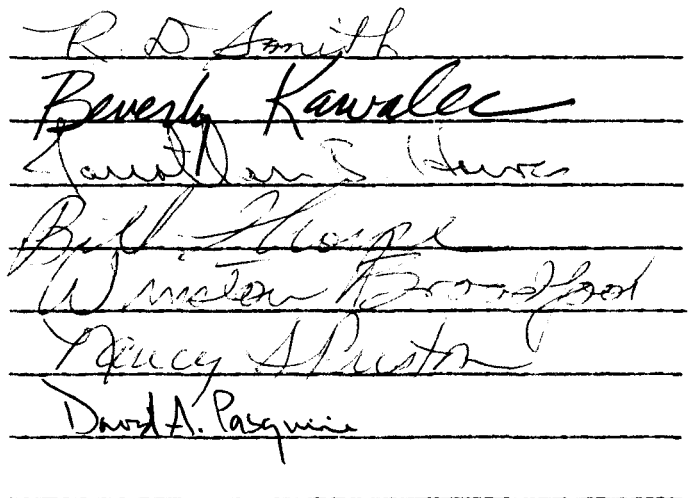 R D Smith
Beverly Kawalec
Jonathan B Howes
Bill Thorpe
Winston Broadfoot
Nancy S Preston
David A. Pasquini